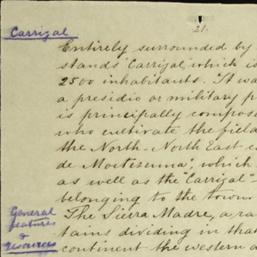 21.
Carrizal
Entirely surrounded by
stands "Carrizal", which is
2500 inhabitants. It wa
a presidio or military p
is principally compose
who cultivate the field
the North-North East e
de Moctezuma", which
as well as the "Carrizal"
belonging to the towns
General
features
&
resources
The Sierra Madre, a ra
tains dividing in that
continent the western a